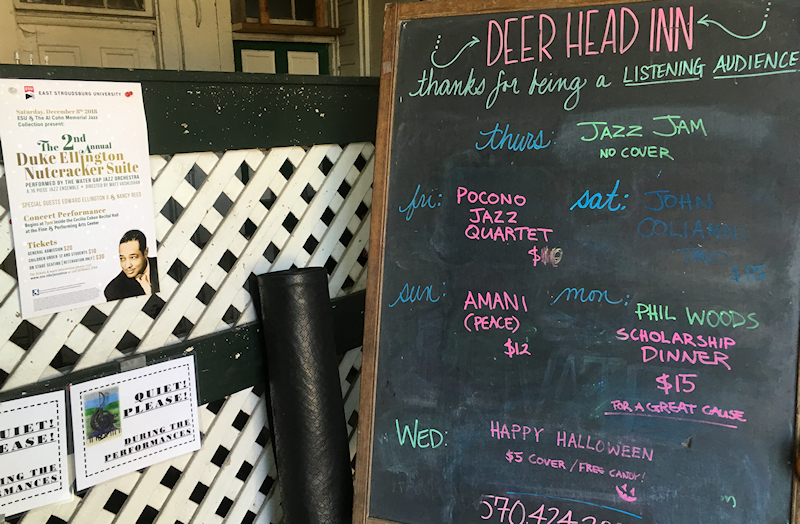 EAST STROUDSBURG UNIVERSITY
Saturday, December 8th 2018
ESU & The Al Cohn Memorial Jazz
Collection present:
The 2nd Annual
Duke Ellington
Nutcracker Suite
PERFORMED BY THE WATER GAP JAZZ ORCHESTRA
A 16 PIECE JAZZ ENSEMBLE • DIRECTED BY MATT VASHLISHAN
SPECIAL GUESTS EDWARD ELLINGTON II & NANCY REED
Concert Performance
Begins at 7pm inside the Cecilia Cohen Recital Hall
at the Fine & Performing Arts Center
Tickets
GENERAL ADMISSION $20
CHILDREN UNDER 12 AND STUDENTS $10
ON STAGE SEATING (RESERVATION ONLY) $30
QUIET!
PLEASE!
DURING THE
PERFORMANCES
UIET!
EASE!
ING THE
MANCES
DEER HEAD INN
thanks for being a LISTENING AUDIENCE
thurs: JAZZ JAM
NO COVER
fri: POCONO
JAZZ
QUARTET
sat: JOHN
COLIANNI
sun: AMANI
(PEACE)
$12
mon: PHIL WOODS
SCHOLARSHIP
DINNER
$15
FOR A GREAT CAUSE
WED: HAPPY HALLOWEEN
$5 COVER / FREE CANDY!
570.424.2